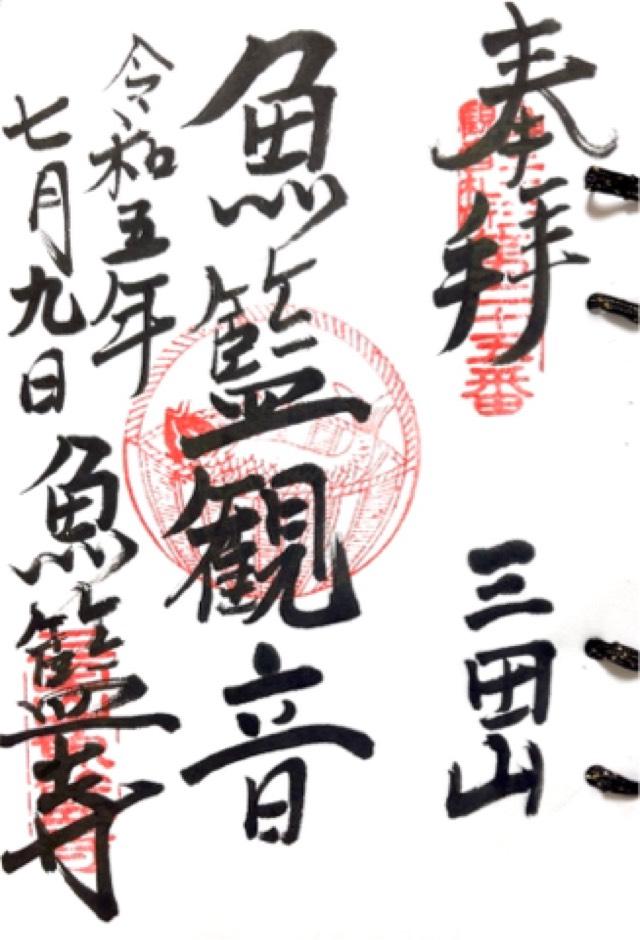 奉拝
三田山
魚籃観音
令和五年
七月九日
魚籃寺
二十五番